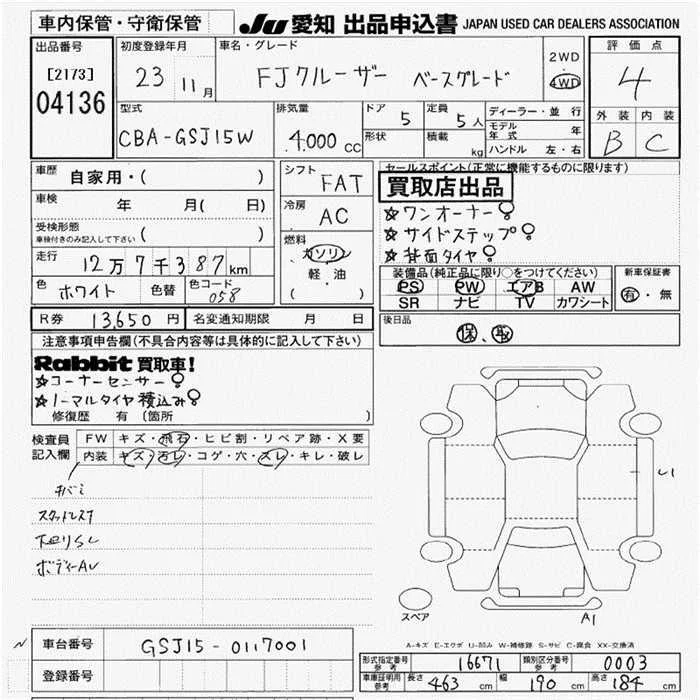 車内保管・守衛保管
JU 愛知 出品申込書 JAPAN USED CAR DEALERS ASSOCIATION
出品番号 初度登録年月 車名・グレード 評価点
[2173] 23 11月 FJクルーザー ベースグレード 2WD 4WD 4
04136
型式 排気量 ドア 定員 ディーラー・並行 外装 内装
CBA-GSJ15W 4.000 cc 5 5人 モデル年式 年 B C
形状 積載 kg ハンドル 左・右
車歴 自家用・( ) シフト FAT セールスポイント(正常に機能するものに限ります)
買取店出品
車検 年 月( 日) 冷房 AC ☆ワンオーナー
受検形態 車検付きのみ記入して下さい ( ) ☆サイドステップ
燃料 ガソリン ☆背面タイヤ
走行 12万7千387km 軽・油 装備品(純正品に限り○をつけてください) 新車保証書
( ) PS PW エアB AW 有・無
色 ホワイト 色替 色コード 058 SR ナビ TV カワシート
R券 13,650円 名変通知期限 月 日 後日品
保、取
注意事項申告欄(不具合内容等は具体的に記入して下さい)
Rabbit 買取車!
☆コーナーセンサー
☆ノーマルタイヤ積込み
修復歴 有 (箇所 )
検査員記入欄 FW キズ・飛石・ヒビ割・リペア跡・X要
内装 キズ・汚レ・コゲ・穴・スレ・キレ・破レ
キバミ
スタッドレスタイヤ
下廻りサビ
ボディーAU
U1
スペア
A1
A-キズ E-エクボ U-凹み W-補修跡 S-サビ C-腐食 XX-交換済
車台番号 GSJ15-0117001
形式指定番号 参考 16671 類別区分番号 参考 0003
登録番号 車庫証明用 参考 長さ 463 cm 幅 190 cm 高さ 184 cm